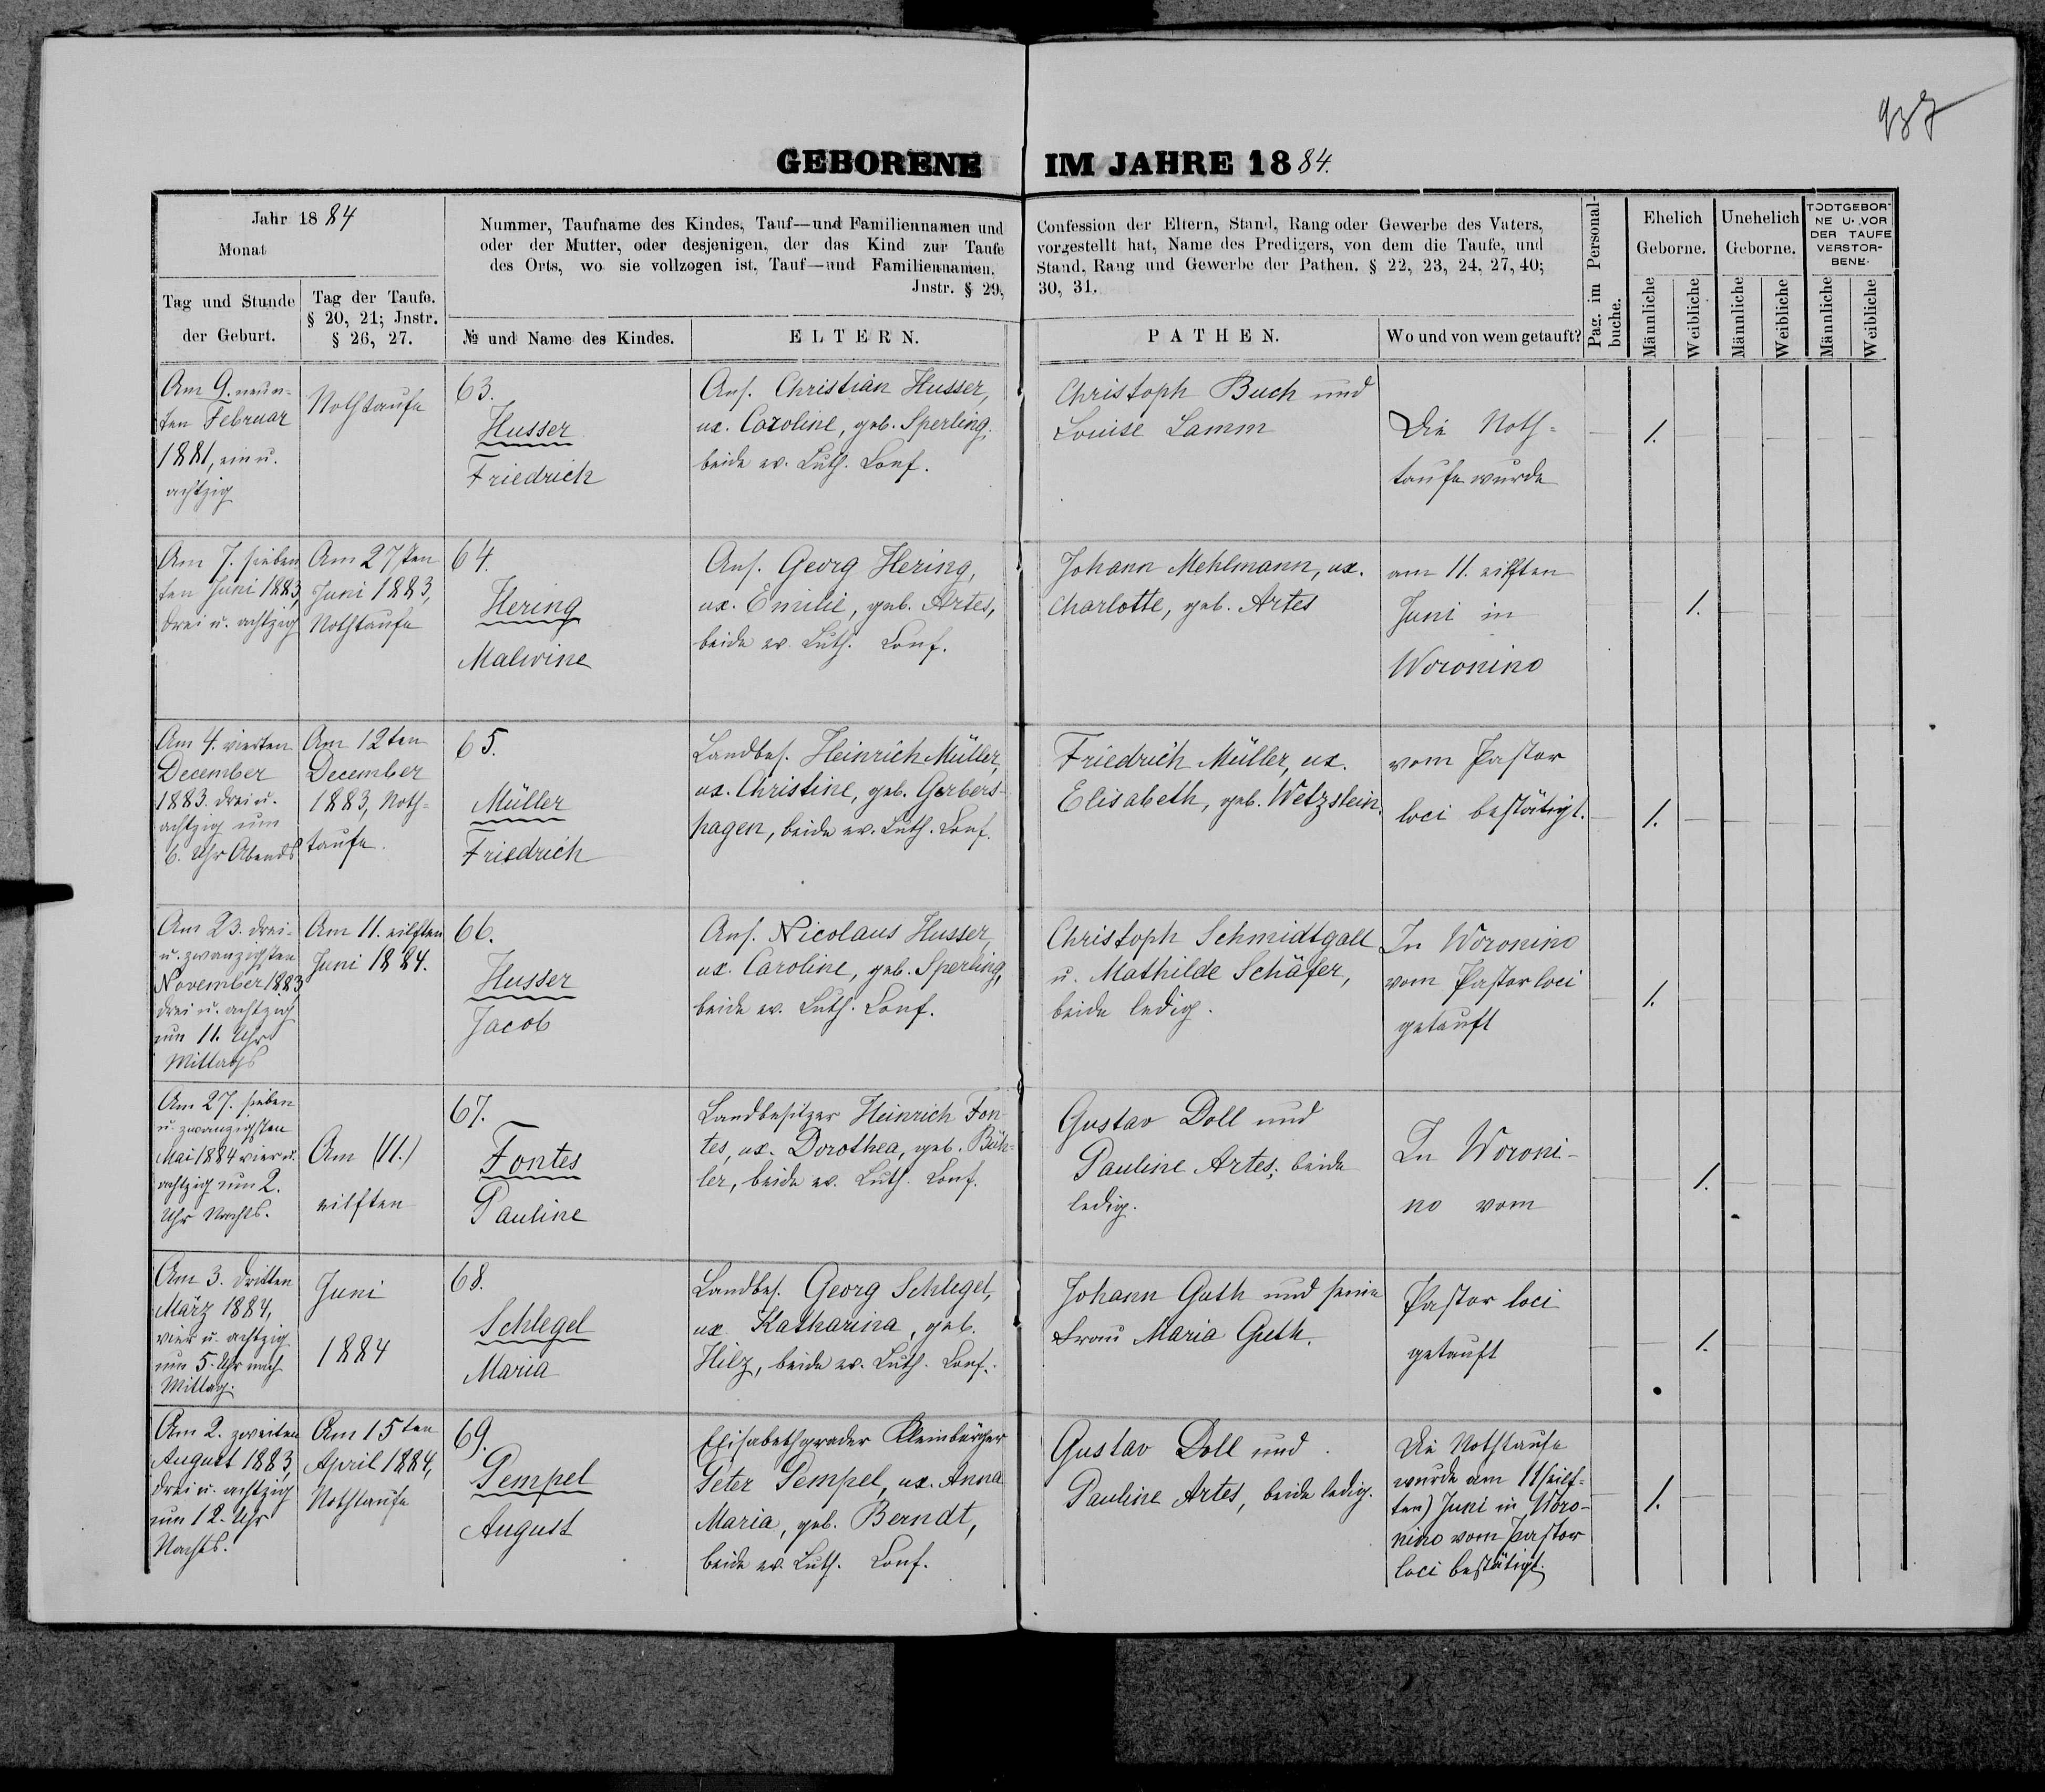 937
GEBORENE IM JAHRE 1884.
Jahr 1884
Monat
Tag und Stunde
der Geburt.
Tag der Taufe.
§ 20, 21; Jnstr.
§ 26, 27.
Nummer, Taufname des Kindes, Tauf—und Familiennamen und
oder der Mutter, oder desjenigen, der das Kind zur Taufe
des Orts, wo sie vollzogen ist, Tauf—und Familiennamen,
Jnstr. § 29,
№ und Name des Kindes.
ELTERN.
Confession der Eltern, Stand, Rang oder Gewerbe des Vaters,
vorgestellt hat, Name des Predigers, von dem die Taufe, und
Stand, Rang und Gewerbe der Pathen. § 22, 23, 24, 27, 40;
30, 31.
PATHEN.
Wo und von wem getauft?
Pag. im Personal-
buche.
Ehelich
Geborne.
Unehelich
Geborne.
TODTGEBOR-
NE U. VOR
DER TAUFE
VERSTOR-
BENE.
Männliche
Weibliche
Männliche
Weibliche
Männliche
Weibliche
Am 9. neun-
ten Februar
1881, ein u.
achtzig
Nothtaufe
63.
Husser
Friedrich
Ans. Christian Husser,
ux. Caroline, geb. Sperling,
beide ev. Luth. Conf.
Christoph Buch und
Louise Lamm
Die Noth-
taufe wurde
1.
Am 7. sieben
ten Juni 1883,
drei u. achtzig
Am 27sten
Juni 1883,
Nothtaufe
64.
Hering
Malwine
Ans. Georg Hering,
ux. Emilie, geb. Artes,
beide ev. Luth. Conf.
Johann Mehlmann, ux.
Charlotte, geb. Artes
am 11. eilften
Juni in
Woronino
1.
Am 4. vierten
December
1883. drei u.
achtzig um
6. Uhr Abends
Am 12ten
December
1883, Noth-
taufe.
65.
Müller
Friedrich
Landbes. Heinrich Müller,
ux. Christine, geb. Gerbers-
hagen, beide ev. Luth. Conf.
Friedrich Müller, ux.
Elisabeth, geb. Wetzstein.
vom Pastor
loci bestätigt.
1.
Am 23. drei-
u. zwanzigsten
November 1883
drei u. achtzig
um 11. Uhr
Mittags
Am 11. eilften
Juni 1884.
66.
Husser
Jacob
Ans. Nicolaus Husser,
ux. Caroline, geb. Sperling,
beide ev. Luth. Conf.
Christoph Schmidtgall
u. Mathilde Schäfer,
beide ledig.
In Woronino
vom Pastor loci
getauft
1.
Am 27. sieben
u. zwanzigsten
Mai 1884 vier u.
achtzig um 2.
Uhr Nachts.
Am (11.)
eilften
67.
Fontes
Pauline
Landbesitzer Heinrich Fon-
tes, ux. Dorothea, geb. Büh-
ler, beide ev. Luth. Conf.
Gustav Doll und
Pauline Artes, beide
ledig.
In Woroni-
no vom
1.
Am 3. dritten
März 1884,
vier u. achtzig
um 5. Uhr nach
Mittag.
Juni
1884
68.
Schlegel
Maria
Landbes. Georg Schlegel,
ux. Katharina, geb.
Hilz, beide ev. Luth. Conf.
Johann Guth und seine
Frau Maria Guth.
Pastor loci
getauft
1.
Am 2. zweiten
August 1883,
drei u. achtzig
um 12. Uhr
Nachts.
Am 15ten
April 1884,
Nothtaufe
69.
Pempel
August
Elisabethgrader Kleinbürger
Peter Pempel, ux. Anna
Maria, geb. Berndt,
beide ev. Luth. Conf.
Gustav Doll und
Pauline Artes, beide ledig.
Die Nothtaufe
wurde am 11 (eilf-
ten) Juni in Woro-
nino vom Pastor
loci bestätigt.
1.